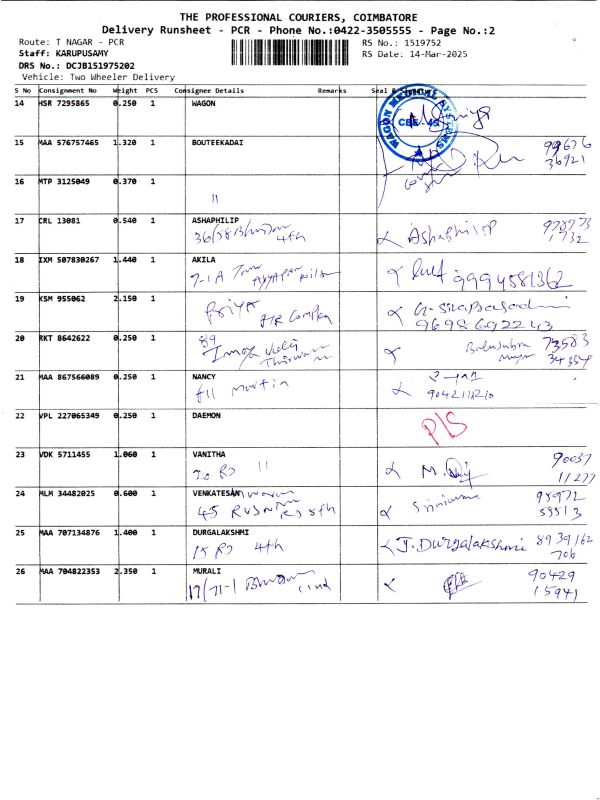 THE PROFESSIONAL COURIERS, COIMBATORE
Delivery Runsheet - PCR - Phone No.:0422-3505555 - Page No.:2
Route: T NAGAR - PCR RS No.: 1519752
Staff: KARUPUSAMY RS Date: 14-Mar-2025
DRS No.: DCJB151975202
Vehicle: Two Wheeler Delivery
S No Consignment No Weight PCS Consignee Details Remarks Seal &
14 HSR 7295865 0.250 1 WAGON
WAGON MEDICAL SYSTEMS
CBE-45
15 MAA 576757465 1.320 1 BOUTEEKADAI 99676
36921
16 MTP 3125049 0.370 1
"
17 CRL 13081 0.540 1 ASHAPHILIP
36/58 4th Ashaphilip 978973
1732
18 IXM 507830267 1.440 1 AKILA
7-1A 9994581362
19 KSM 955062 2.150 1
Priya
9698692243
20 RKT 8642622 0.250 1 89 73583
34334
21 MAA 867566089 0.250 1 NANCY
f11 Martin
22 VPL 227065349 0.250 1 DAEMON P/S
23 VDK 5711455 1.060 1 VANITHA 90037
11277
24 MLM 34482025 0.600 1 VENKATESAN
45 5th 95972
25 MAA 707134876 1.400 1 DURGALAKSHMI
15 RD 4th J. Durgalakshmi 8939162
706
26 MAA 704822353 2.350 1 MURALI 90429
17/71-1 15941